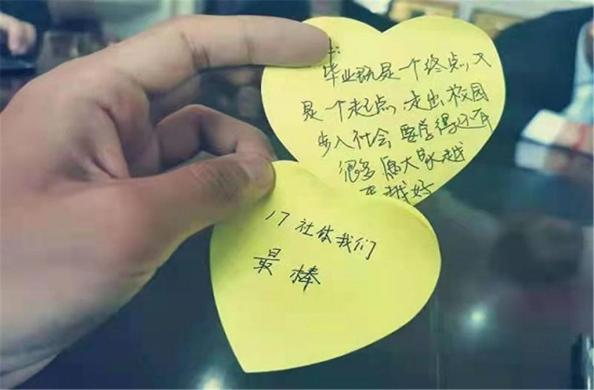 毕业既是一个终点,又
是一个起点,走出校园
步入社会 要觉得还有
很多 愿大家越
越好
17社体我们
最棒